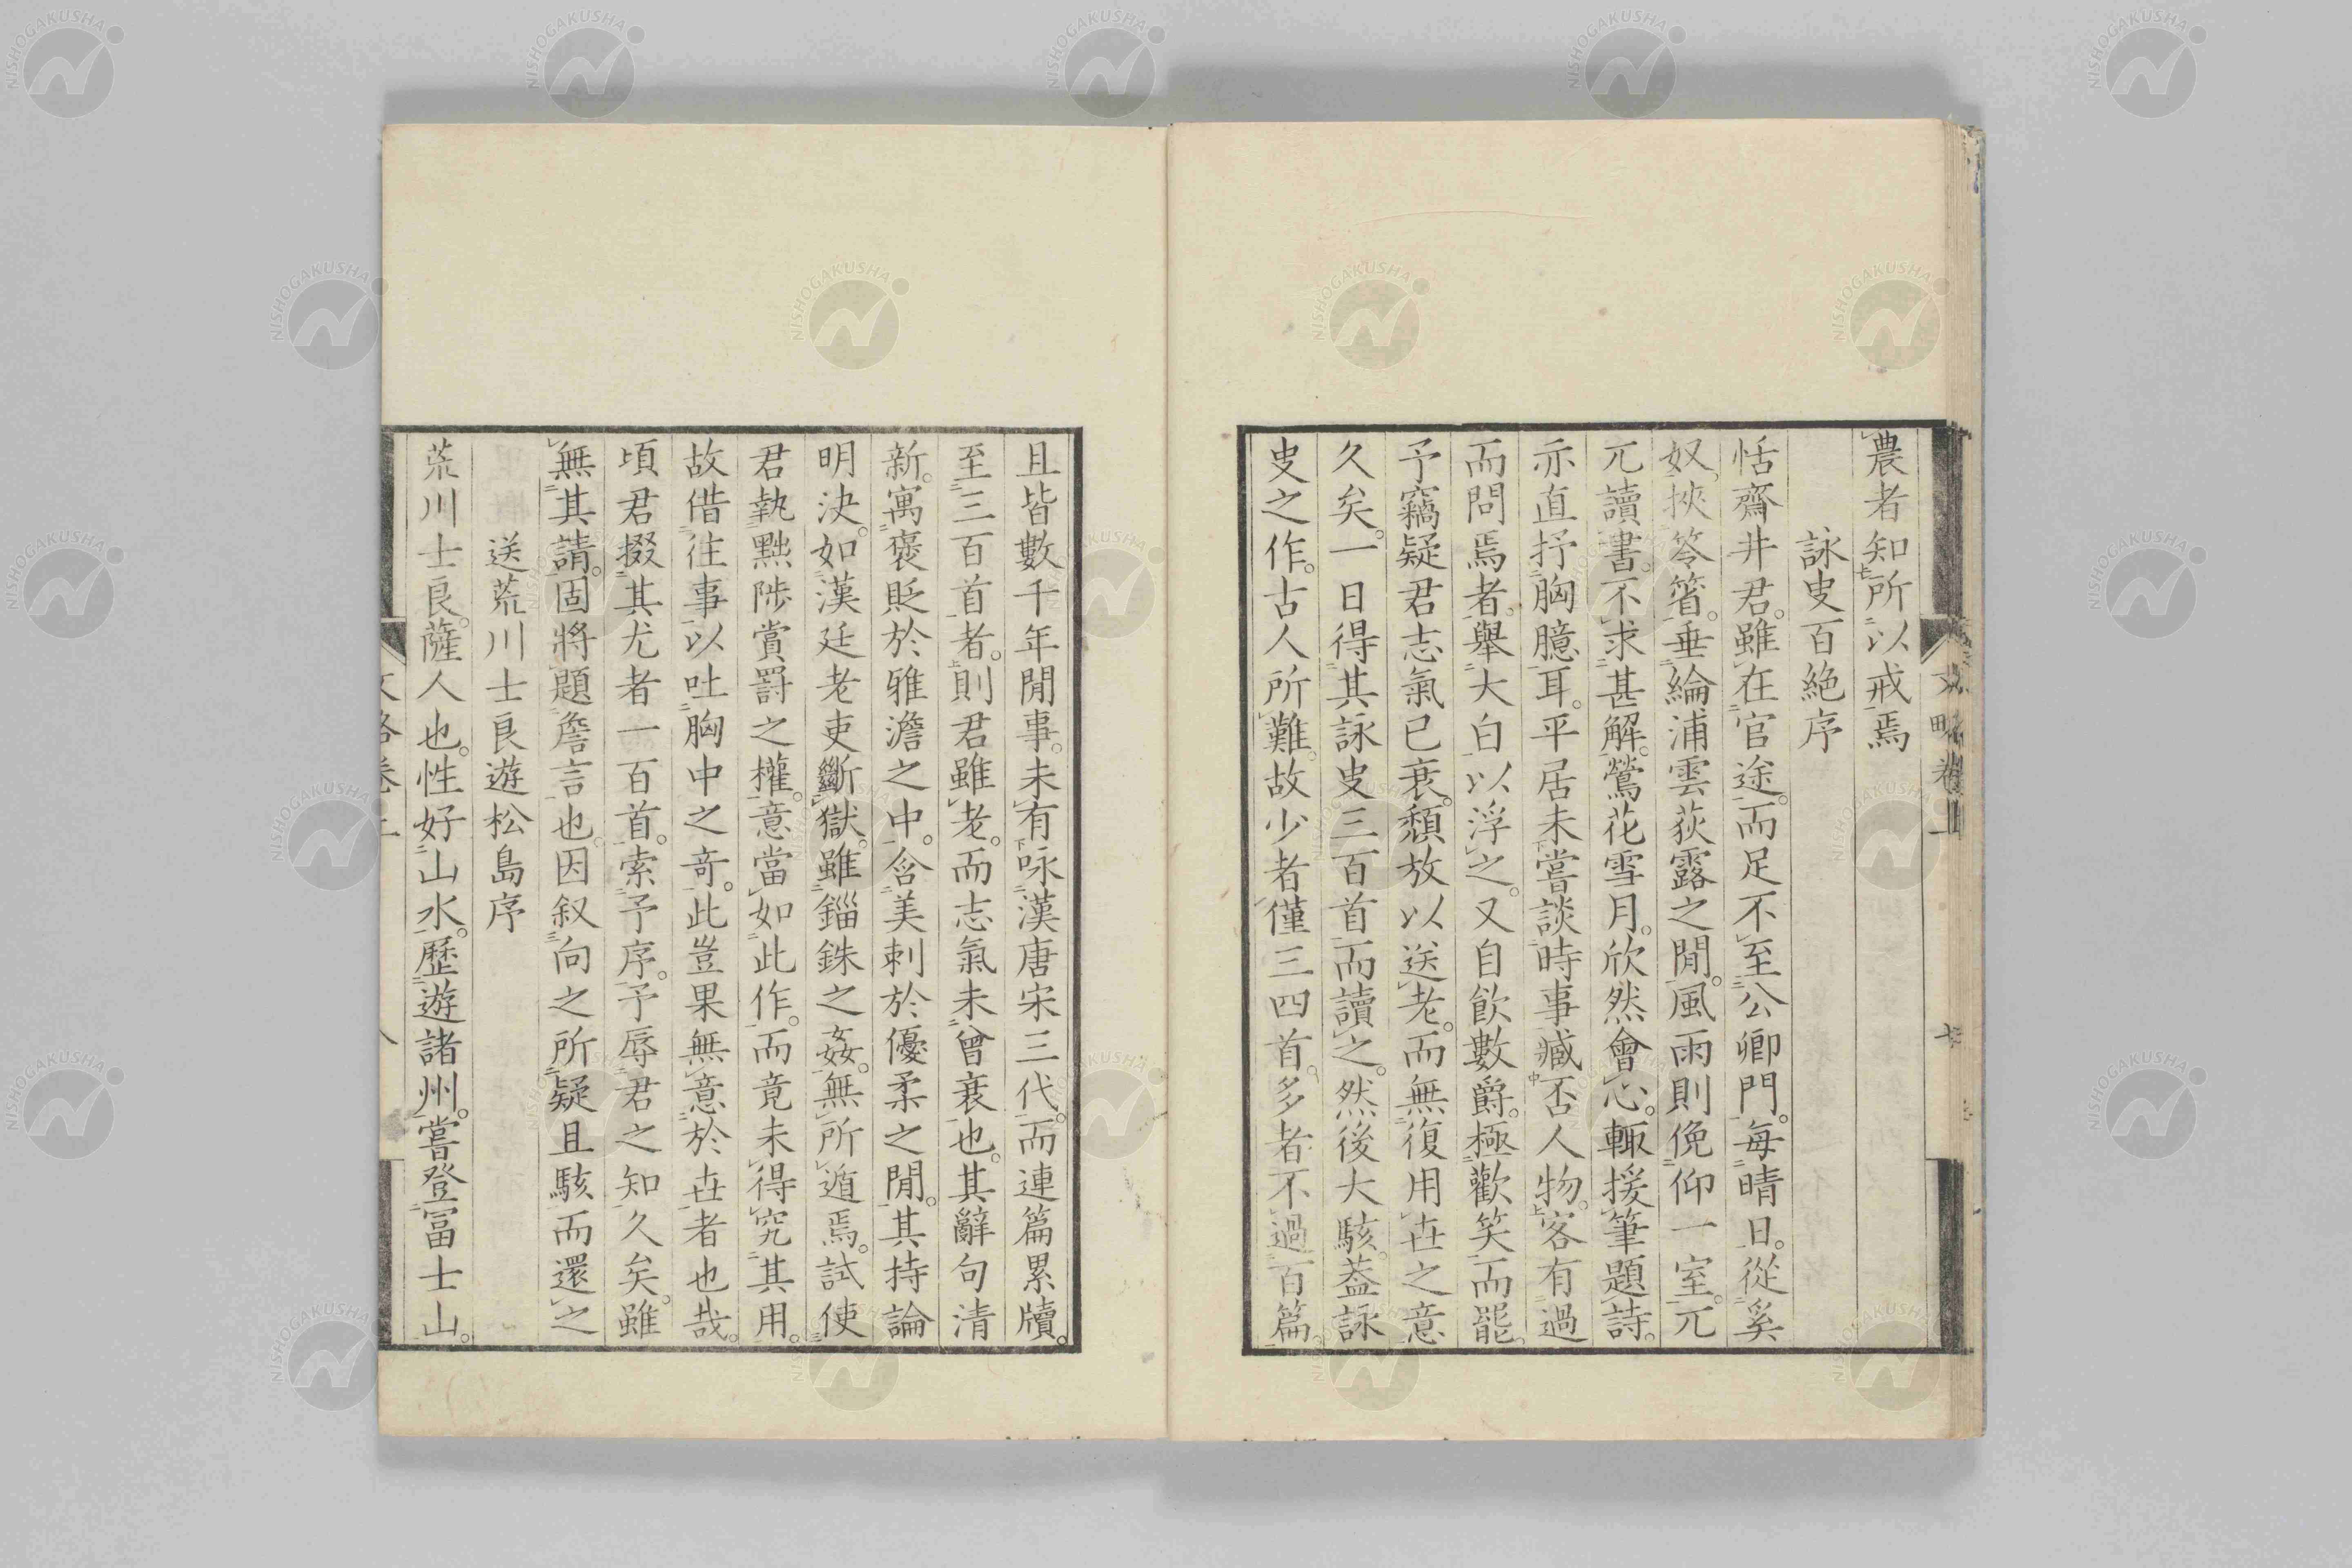 農者知所以戒焉
詠史百絶序
恬齋井君。雖在官途。而足不至公卿門。每晴日。從奚
奴、挾笭箵。垂綸浦雲荻露之閒。風雨則俛仰一室。兀
兀讀書。不求甚解。鶯花雪月。欣然會心。輙援筆題詩。
亦直抒胸臆耳。平居未嘗談時事臧否人物。客有過
而問焉者。舉大白以浮之。又自飲數爵。極歡笑而罷。
予竊疑君志氣已衰。頹放以送老。而無復用世之意
久矣。一日得其詠史三百首而讀之。然後大駭。蓋詠
史之作。古人所難。故少者僅三四首。多者不過百篇
且皆數千年閒事。未有咏漢唐宋三代。而連篇累牘。
至三百首者。則君雖老。而志氣未曾衰也。其辭句清
新。寓褒貶於雅澹之中。含美刺於優柔之閒。其持論
明決。如漢廷老吏斷獄。雖錙銖之姦。無所遁焉。試使
君執黜陟賞罰之權。意當如此作。而竟未得究其用。
故借往事以吐胸中之奇。此豈果無意於世者也哉。
頃君掇其尤者一百首。索予序。予辱君之知久矣。雖
無其請。固將題詹言也。因叙向之所疑且駭而還之
送荒川士良遊松島序
荒川士良。薩人也。性好山水。歷遊諸州。嘗登冨士山。
文略卷上
七
文略卷上
八
NISHOGAKUSHA